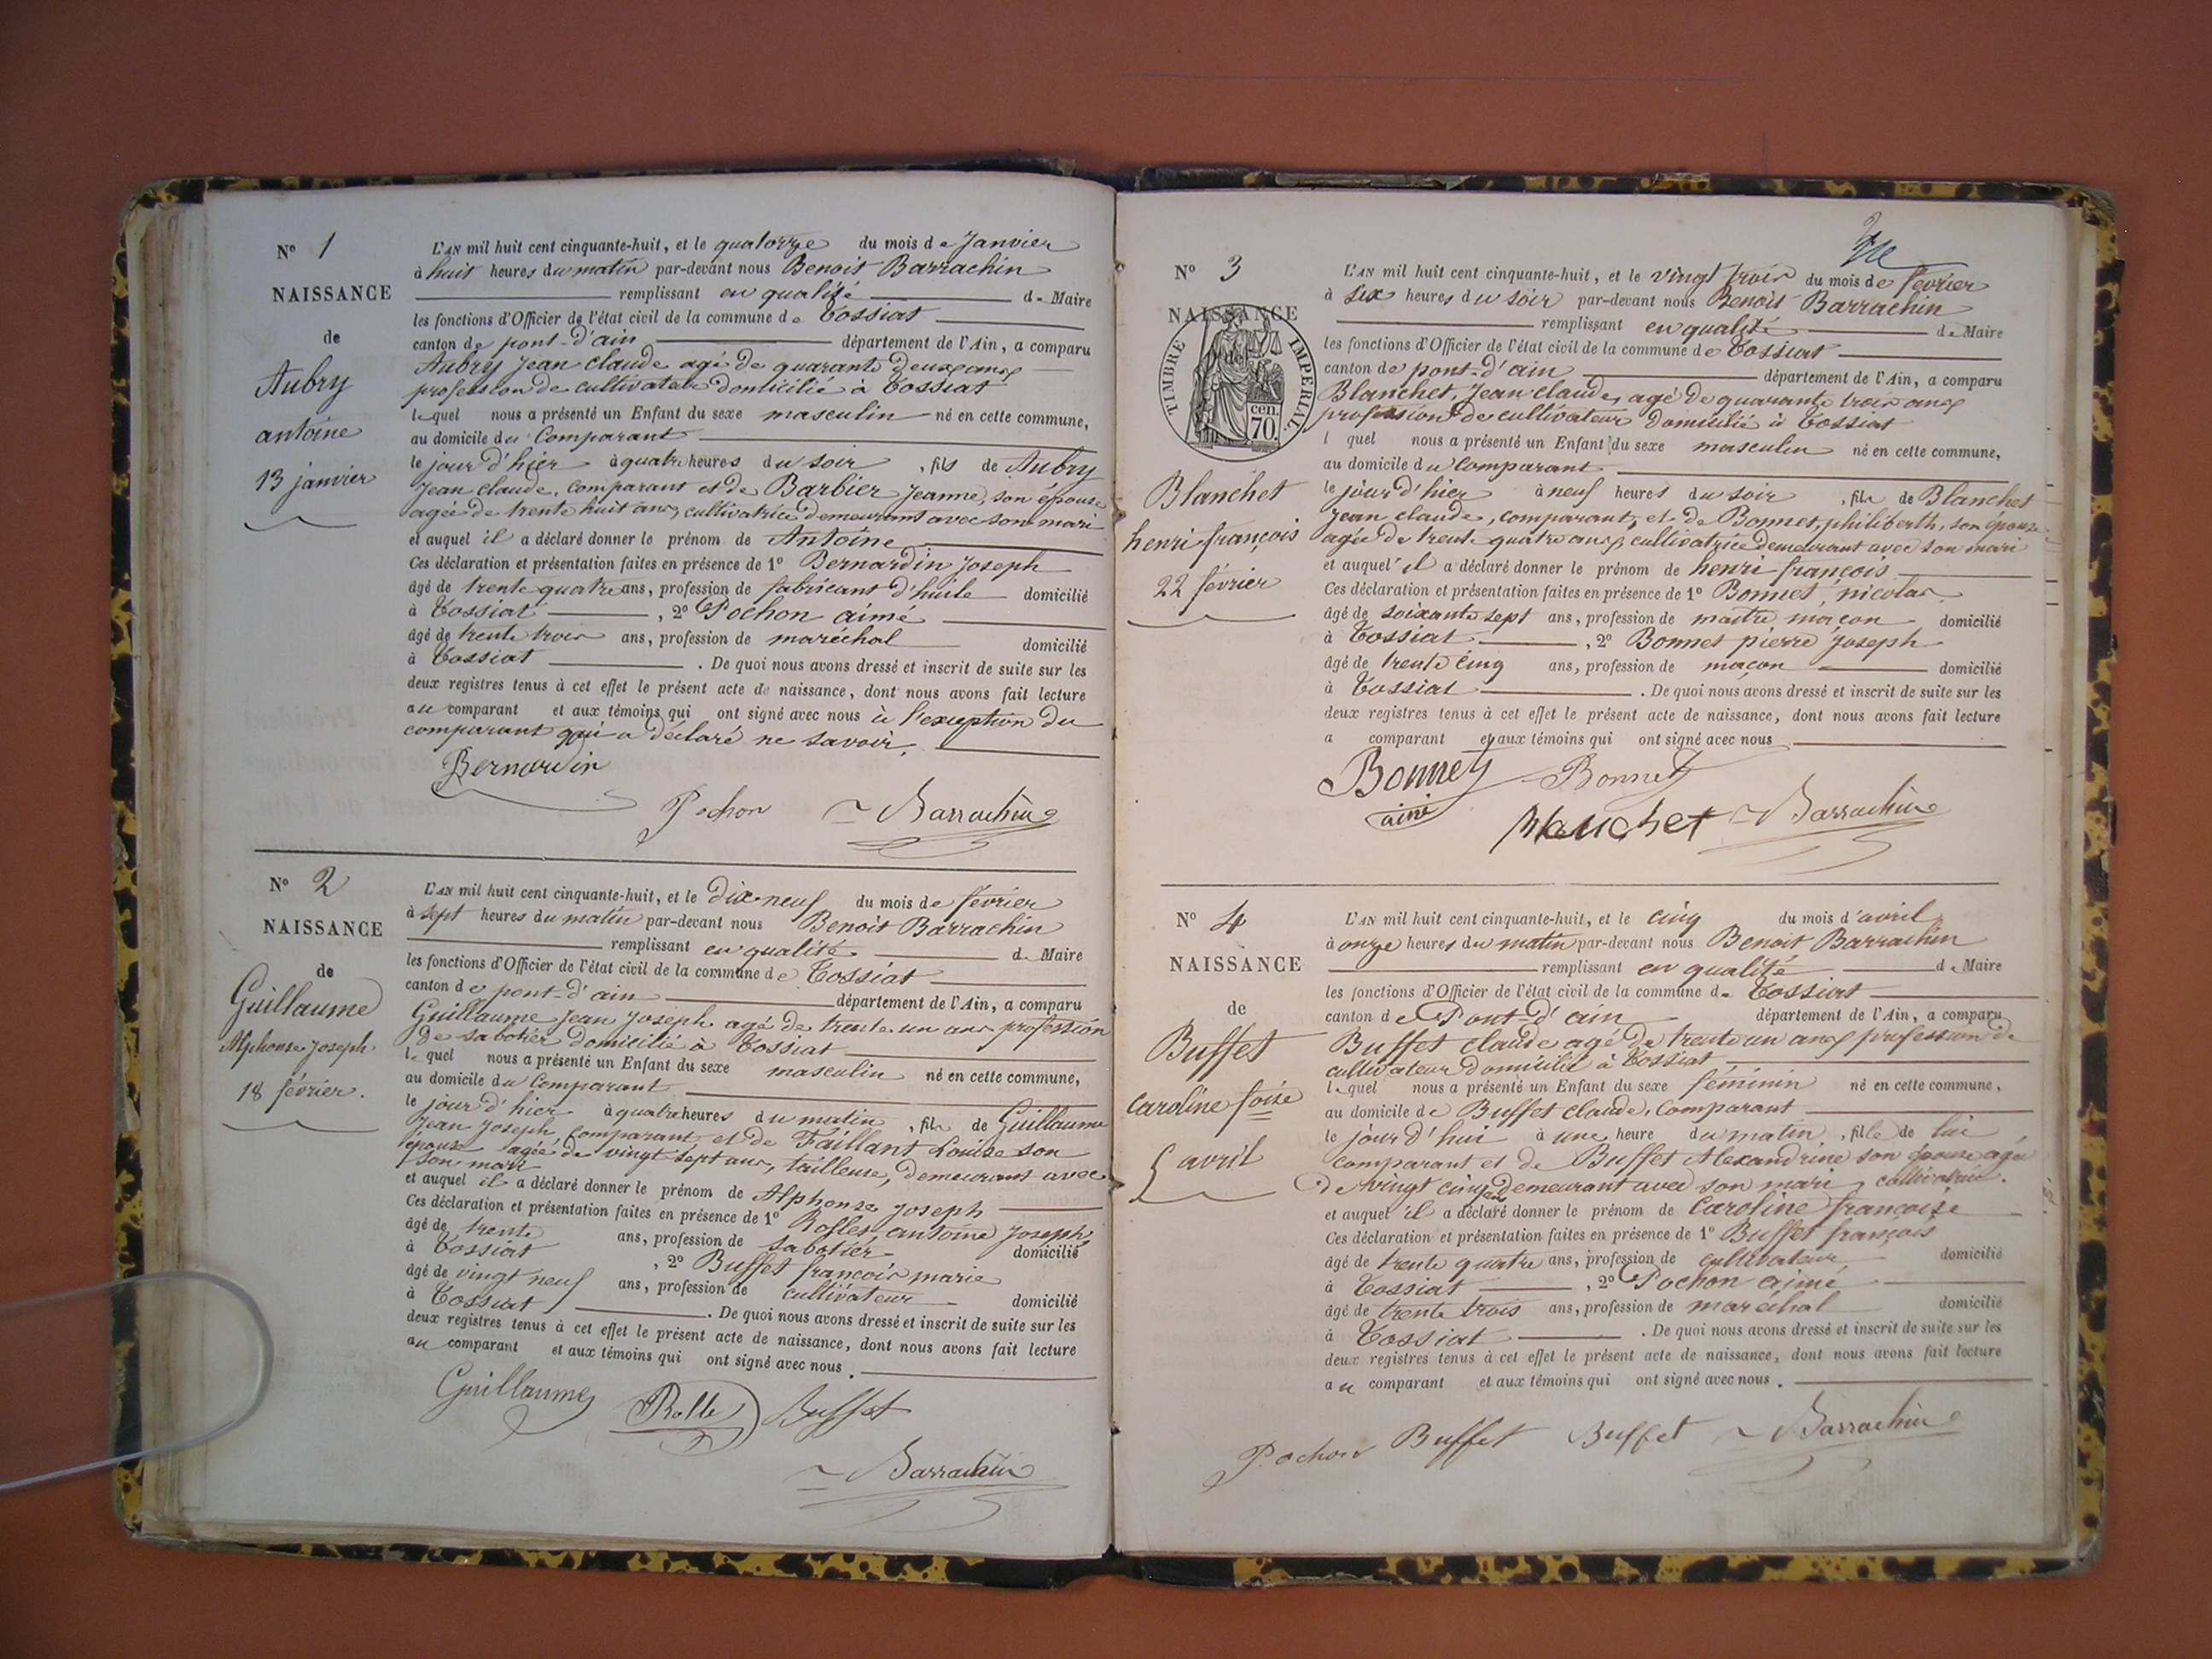 N° 1
NAISSANCE
de
Aubry
antoine
13 janvier
L'AN mil huit cent cinquante-huit, et le quatorze du mois de Janvier
à huit heures du matin par-devant nous Benoit Barrachin
remplissant en qualité de Maire
les fonctions d'Officier de l'état civil de la commune de Tossiat
canton de pont-d'ain département de l'Ain, a comparu
Aubry Jean claude agé de quarante deux ans
profession de cultivateur domicilié à Tossiat
lequel nous a présenté un Enfant du sexe masculin né en cette commune,
au domicile du Comparant
le jour d'hier à quatre heures du soir, fils de Aubry
Jean claude, comparant et de Barbier Jeanne, son épouse
agée de trente huit ans, cultivatrice demeurant avec son mari
et auquel il a déclaré donner le prénom de Antoine
Ces déclaration et présentation faites en présence de 1° Bernardin Joseph
âgé de trente quatre ans, profession de fabricant d'huile domicilié
à Tossiat, 2° Pochon aimé
âgé de trente trois ans, profession de maréchal domicilié
à Tossiat. De quoi nous avons dressé et inscrit de suite sur les
deux registres tenus à cet effet le présent acte de naissance, dont nous avons fait lecture
au comparant et aux témoins qui ont signé avec nous à l'exception du
comparant qui a déclaré ne savoir.
Bernardin
Pochon Barrachin
N° 2
NAISSANCE
de
Guillaume
Alphonse Joseph
18 février.
L'AN mil huit cent cinquante-huit, et le Dix-neuf du mois de février
à sept heures du matin par-devant nous Benoit Barrachin
remplissant en qualité de Maire
les fonctions d'Officier de l'état civil de la commune de Tossiat
canton de pont-d'ain département de l'Ain, a comparu
Guillaume Jean Joseph agé de trente un ans profession
de sabotier domicilié à Tossiat
lequel nous a présenté un Enfant du sexe masculin né en cette commune,
au domicile du Comparant
le jour d'hier à quatre heures du matin, fils de Guillaume
Jean Joseph, comparant et de Faillant Louise son
épouse agée de vingt sept ans, tailleuse, demeurant avec
son mari
et auquel il a déclaré donner le prénom de Alphonse Joseph
Ces déclaration et présentation faites en présence de 1° antoine Joseph
âgé de trente ans, profession de sabotier domicilié
à Tossiat, 2° Buffet françois marie
âgé de vingt neuf ans, profession de cultivateur domicilié
à Tossiat. De quoi nous avons dressé et inscrit de suite sur les
deux registres tenus à cet effet le présent acte de naissance, dont nous avons fait lecture
au comparant et aux témoins qui ont signé avec nous.
Guillaume Rolle Buffet
Barrachin
N° 3
NAISSANCE
de
TIMBRE IMPERIAL.
cen.
70.
Blanchet
henri françois
22 février
L'AN mil huit cent cinquante-huit, et le vingt trois du mois de février
à six heures du soir par-devant nous Benoit Barrachin
remplissant en qualité de Maire
les fonctions d'Officier de l'état civil de la commune de Tossiat
canton de pont-d'ain département de l'Ain, a comparu
Blanchet, Jean claude, agé de quarante trois ans
profession de cultivateur domicilié à Tossiat
l quel nous a présenté un Enfant du sexe masculin né en cette commune,
au domicile du Comparant
le jour d'hier à neuf heures du soir, fils de Blanchet
Jean claude, comparant, et de Bonnet, philiberth, son épouse
agée de trente quatre ans, cultivatrice demeurant avec son mari
et auquel il a déclaré donner le prénom de henri françois
Ces déclaration et présentation faites en présence de 1° Bonnet, nicolas
âgé de soixante sept ans, profession de maitre maçon domicilié
à Tossiat, 2° Bonnet pierre Joseph
âgé de trente cinq ans, profession de maçon domicilié
à Tossiat. De quoi nous avons dressé et inscrit de suite sur les
deux registres tenus à cet effet le présent acte de naissance, dont nous avons fait lecture
a comparant et aux témoins qui ont signé avec nous
Bonnet Bonnet
ainé
Blanchet Barrachin
N° 4
NAISSANCE
de
Buffet
Caroline foise
5 avril
L'AN mil huit cent cinquante-huit, et le cinq du mois d'avril
à onze heures du matin par-devant nous Benoit Barrachin
remplissant en qualité de Maire
les fonctions d'Officier de l'état civil de la commune de Tossiat
canton de Pont-d'ain département de l'Ain, a comparu
Buffet claude agé de trente un ans profession de
cultivateur domicilié à Tossiat
lequel nous a présenté un Enfant du sexe féminin né en cette commune,
au domicile de Buffet claude, comparant
le jour d'hui à une heure du matin, fille de lui
comparant et de Buffet Alexandrine son épouse agée
de vingt cinq ans demeurant avec son mari, cultivatrice.
et auquel il a déclaré donner le prénom de Caroline françoise
Ces déclaration et présentation faites en présence de 1° Buffet françois
âgé de trente quatre ans, profession de cultivateur domicilié
à Tossiat, 2° Pochon aimé
âgé de trente trois ans, profession de maréchal domicilié
à Tossiat. De quoi nous avons dressé et inscrit de suite sur les
deux registres tenus à cet effet le présent acte de naissance, dont nous avons fait lecture
au comparant et aux témoins qui ont signé avec nous.
Pochon Buffet Buffet Barrachin